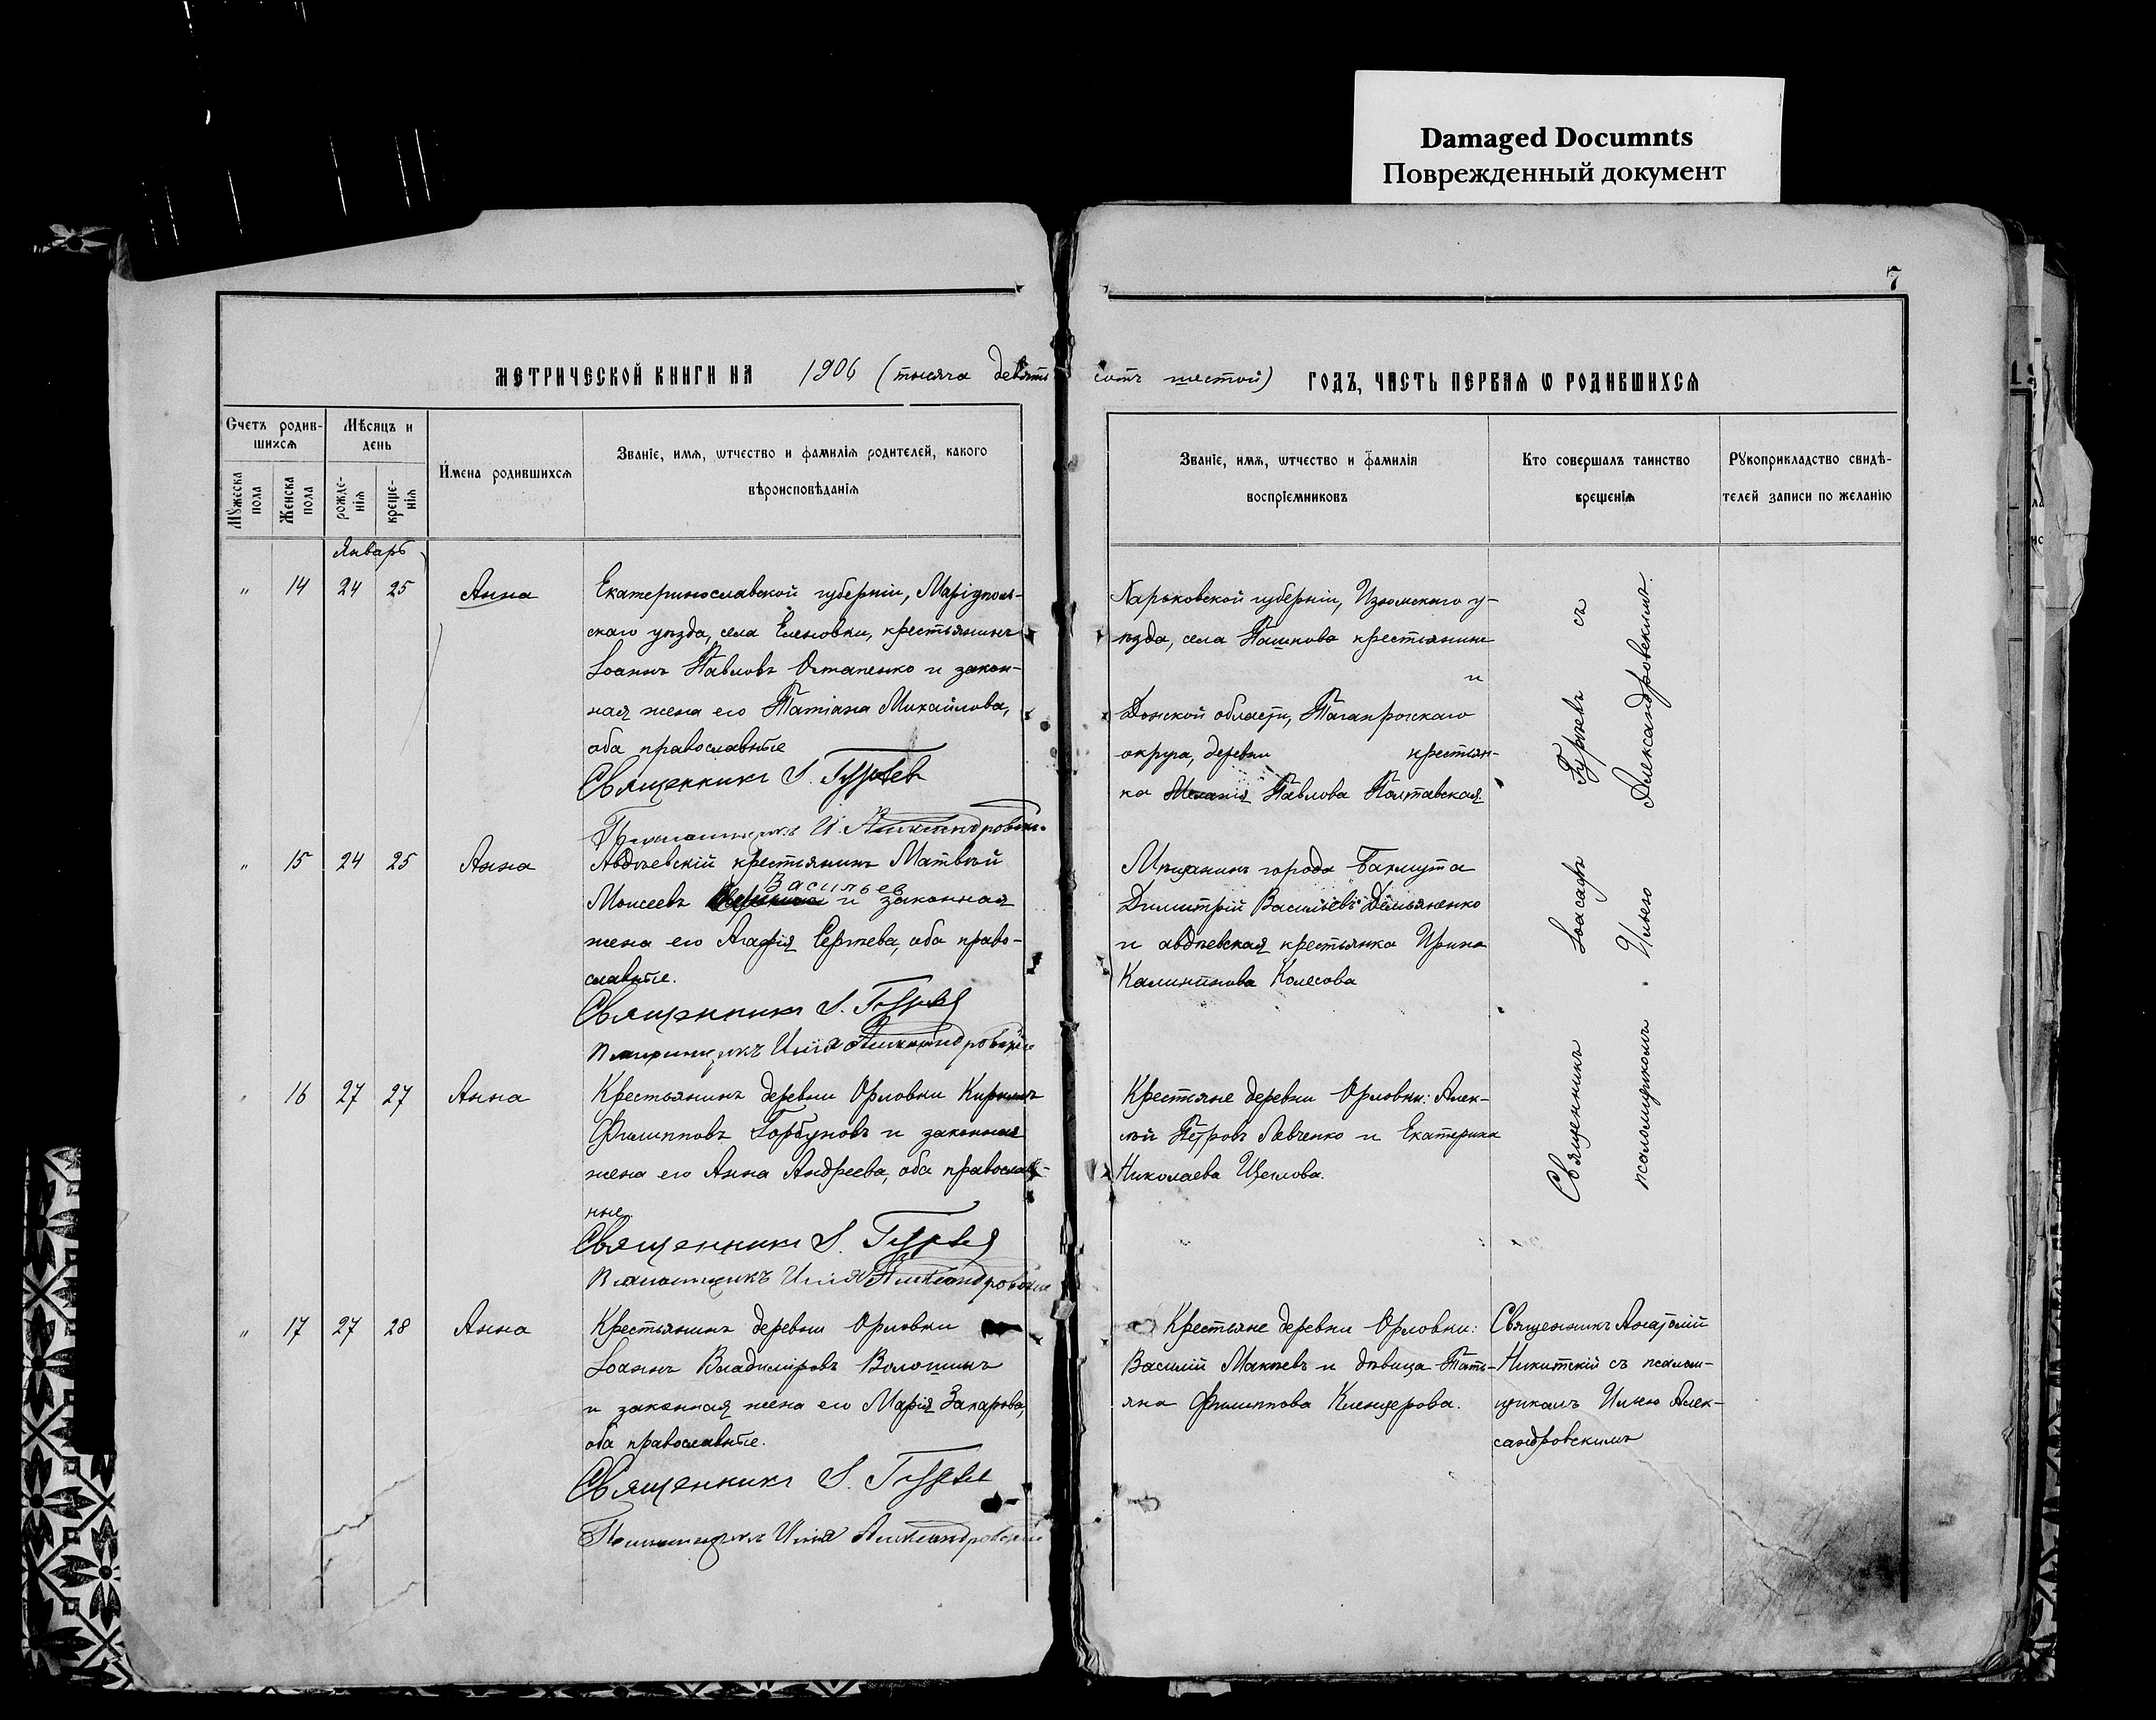 Damaged Documnts
Поврежденный документ
7
МЕТРИЧЕСКОЙ КНИГИ НА 1906 (тысяча девять
сотъ шестой) ГОДЪ, ЧАСТЬ ПЕРВАЯ Ѡ РОДИВШИХСЯ
Счетъ родив-
шихся
Мужеска пола
Женска пола
Мѣсяцъ и
день
рожде-
нія
креще-
нія
Имена родившихся
Званіе, имя, ѡтчество и фамилія родителей, какого
вѣроисповѣданія
Званіе, имя, ѡтчество и фамилія
воспріемниковъ
Кто совершалъ таинство
крещенія
Рукоприкладство свидѣ-
телей записи по желанію
Январь
" 14 24 25 Анна
Екатеринославской губерніи, Маріуполь-
скаго уѣзда, села Еленовки, крестьянинъ
Іоаннъ Павловъ Остапенко и закон-
ная жена его Татіана Михайлова,
оба православные
Священникъ І. Гурьев
И. Александровскій
Харьковской губерніи, Изюмскаго у-
ѣзда, села Пашкова крестьянинъ
и
Донской области, Таганрогскаго
округа, деревни крестьян-
ка Меланія Павлова Полтавская
" 15 24 25 Анна
Авдѣевскій крестьянинъ Матвѣй
Васильев
Моисеевъ и законная
жена его Агафія Сергеева, оба право-
славные.
Священникъ І. Гурьев
Псаломщикъ Илія Александровскій
Мѣщанинъ города Бахмута
Димитрій Васильевъ Демьяненко
и авдѣевская крестьянка Ирина
Калинтнова Колесова
" 16 27 27 Анна
Крестьянинъ деревни Орловки Кириллъ
Филипповъ Горбуновъ и законная
жена его Анна Андреева, оба православ-
ные.
Священникъ І. Гурьев
Псаломщикъ Илія Александровскій
Крестьяне деревни Орловки: Алек-
сѣй Петровъ Левченко и Екатерина
Николаева Щеглова.
Священникъ Іоасафъ Гурьевъ съ
псаломщикомъ Ильею Александровскимъ.
" 17 27 28 Анна
Крестьянинъ деревни Орловки
Іоаннъ Владиміровъ Волошинъ
и законная жена его Марія Захарова,
оба православные.
Священникъ І. Гурьев
Псаломщикъ Илія Александровскій
Крестьяне деревни Орловки:
Василій Макѣевъ и дѣвица Тать-
яна Филиппова Кленцерова.
Священникъ Анатолій
Никитскій съ псалом-
щикомъ Ильею Алек-
сандровскимъ